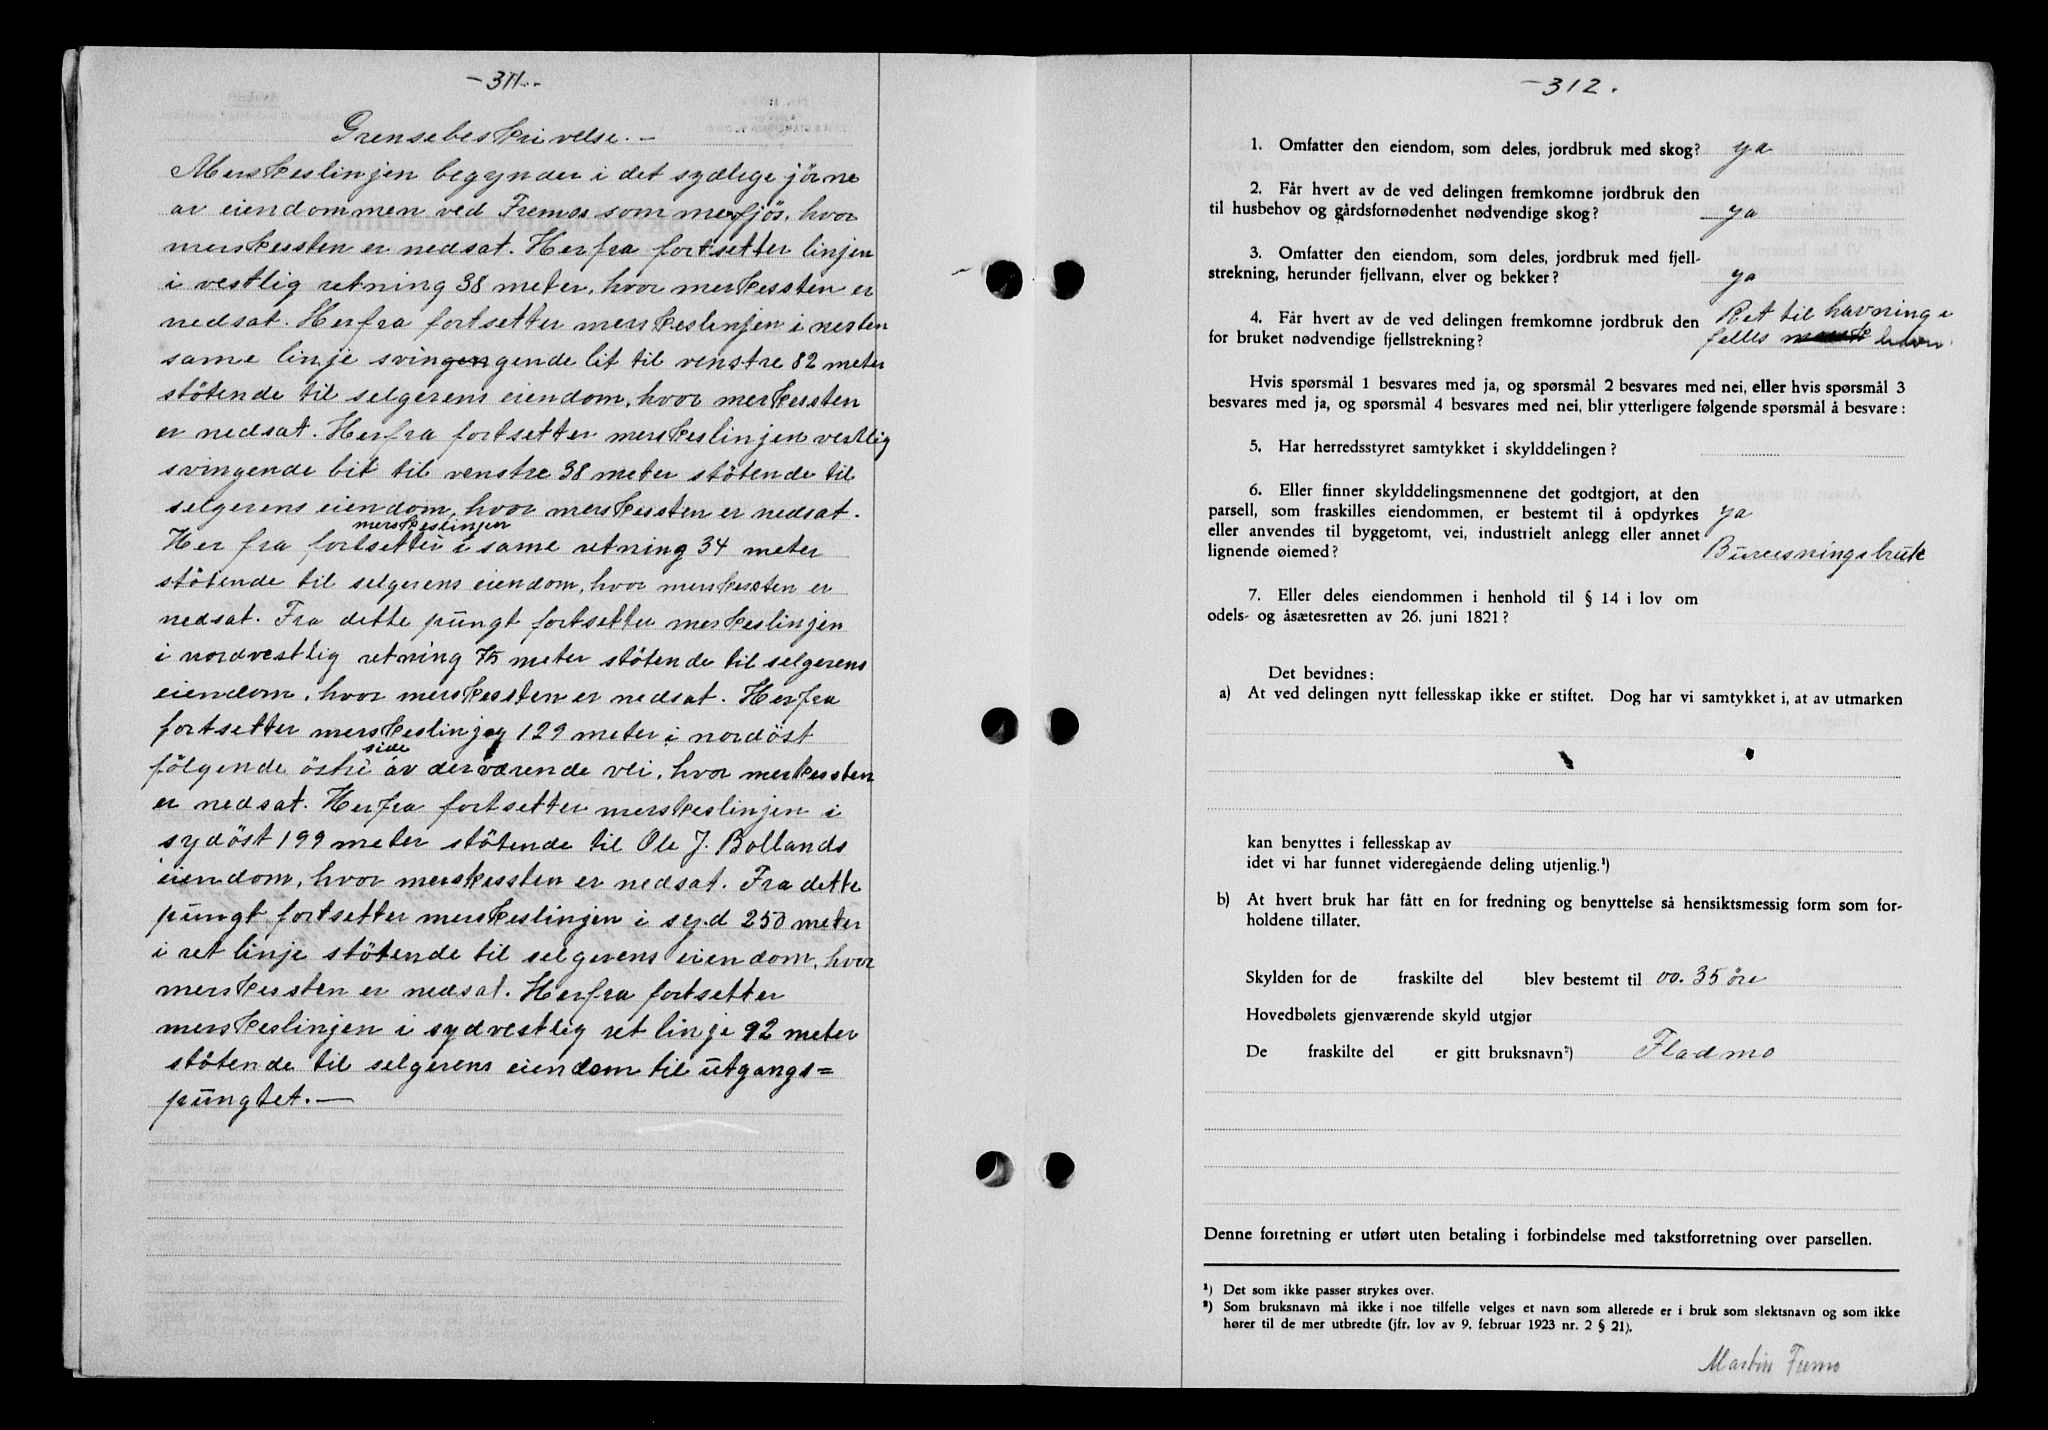 - 311. -
Grensebeskrivelse. -
Merskeslinjen begynder i det sydlige jörne
av eiendommen ved Fremos som merfjös, hvor
merskessten er nedsat. Herfra fortsetter linjen
i vestlig retning 38 meter, hvor merskessten er
nedsat. Herfra fortsetter merskeslinjen i nesten
same linje svingengende lit til venstre 82 meter
stötende til selgerens eiendom, hvor merskessten
er nedsat. Herfra fortsetter merskeslinjen vestlig
svingende lit til venstre 38 meter stötende til
selgerens eiendom, hvor merskessten er nedsat.
merskeslinjen
Her fra fortsetter i same retning 34 meter
stötende til selgerens eiendom, hvor merskessten er
nedsat. Fra dette pungt fortsetter merskeslinjen
i nordvestlig retning 75 meter stötende til selgerens
eiendom, hvor merskessten er nedsat. Herfra
fortsetter merskeslinjen 129 meter i nordöst
side
fölgende östre av derværende vei, hvor merkessten
er nedsat. Herfra fortsetter merskeslinjen i
sydöst 199 meter stötende til Ole J. Bollands
eiendom, hvor merskessten er nedsat. Fra dette
pungt fortsetter merskeslinjen i syd 250 meter
i ret linje stötende til selgerens eiendom, hvor
merskessten er nedsat. Herfra fortsetter
merskeslinjen i sydvestlig ret linje 92 meter
stötende til selgerens eiendom til utgangs=
pungtet. -
- 312.
1. Omfatter den eiendom, som deles, jordbruk med skog? ya
2. Får hvert av de ved delingen fremkomne jordbruk den
til husbehov og gårdsfornødenhet nødvendige skog? ya
3. Omfatter den eiendom, som deles, jordbruk med fjell-
strekning, herunder fjellvann, elver og bekker? ya
4. Får hvert av de ved delingen fremkomne jordbruk den Ret til havning i
for bruket nødvendige fjellstrekning? felles
Hvis spørsmål 1 besvares med ja, og spørsmål 2 besvares med nei, eller hvis spørsmål 3
besvares med ja, og spørsmål 4 besvares med nei, blir ytterligere følgende spørsmål å besvare:
5. Har herredsstyret samtykket i skylddelingen?
6. Eller finner skylddelingsmennene det godtgjort, at den
parsell, som fraskilles eiendommen, er bestemt til å opdyrkes ya
eller anvendes til byggetomt, vei, industrielt anlegg eller annet
lignende øiemed? Bureisningsbruk
7. Eller deles eiendommen i henhold til § 14 i lov om
odels- og åsætesretten av 26. juni 1821?
Det bevidnes:
a) At ved delingen nytt fellesskap ikke er stiftet. Dog har vi samtykket i, at av utmarken
kan benyttes i fellesskap av
idet vi har funnet videregående deling utjenlig.¹)
b) At hvert bruk har fått en for fredning og benyttelse så hensiktsmessig form som for-
holdene tillater.
Skylden for de fraskilte del blev bestemt til 00.35 öre
Hovedbølets gjenværende skyld utgjør
De fraskilte del er gitt bruksnavn²) Fladmo
Denne forretning er utført uten betaling i forbindelse med takstforretning over parsellen.
¹) Det som ikke passer strykes over.
²) Som bruksnavn må ikke i noe tilfelle velges et navn som allerede er i bruk som slektsnavn og som ikke
hører til de mer utbredte (jfr. lov av 9. februar 1923 nr. 2 § 21).
Martin Fremo